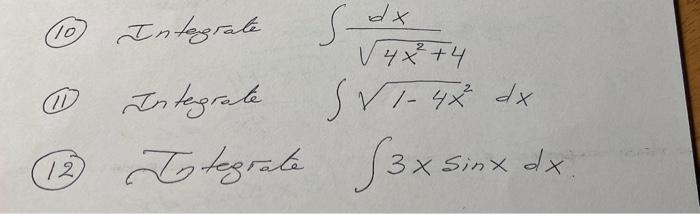 (10) Integrate ∫ dx / √(4x² + 4)
(11) Integrate ∫ √(1 - 4x²) dx
(12) Integrate ∫ 3x sinx dx.